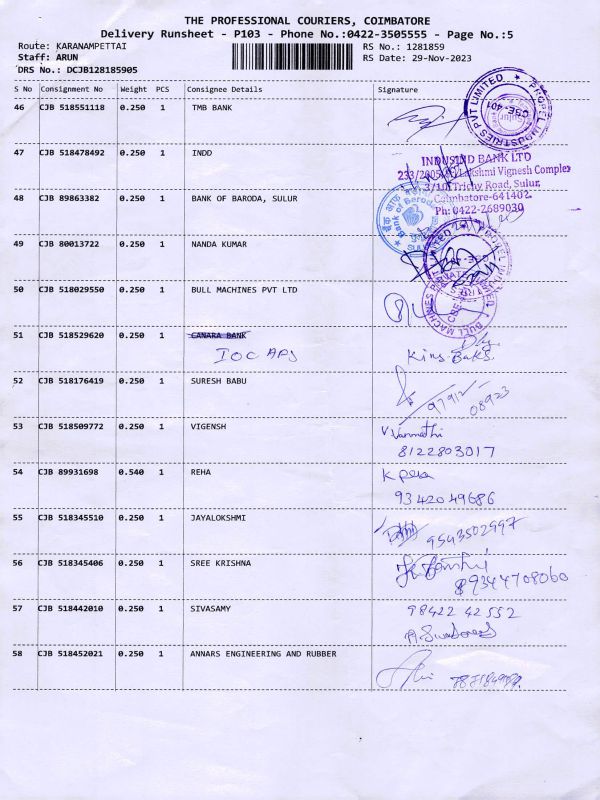 THE PROFESSIONAL COURIERS, COIMBATORE
Delivery Runsheet - P103 - Phone No.:0422-3505555 - Page No.:5
Route: KARANAMPETTAI RS No.: 1281859
Staff: ARUN RS Date: 29-Nov-2023
DRS No.: DCJB128185905
S No Consignment No Weight PCS Consignee Details Signature
46 CJB 518551118 0.250 1 TMB BANK
PROPEL INDUSTRIES PVT LIMITED
CBE-401
47 CJB 518478492 0.250 1 INDD
INDUSIND BANK LTD
Lakshmi Vignesh Complex
3/10, Trichy Road, Sulur,
Coimbatore-641402.
Ph: 0422-2689030
48 CJB 89863382 0.250 1 BANK OF BARODA, SULUR
Bank of Baroda
49 CJB 80013722 0.250 1 NANDA KUMAR
50 CJB 518029550 0.250 1 BULL MACHINES PVT LTD
BULL MACHINES
51 CJB 518529620 0.250 1 CANARA BANK
IOC APJ
52 CJB 518176419 0.250 1 SURESH BABU
97912
08923
53 CJB 518509772 0.250 1 VIGENSH
8122803017
54 CJB 89931698 0.540 1 REHA
9342049686
55 CJB 518345510 0.250 1 JAYALOKSHMI
9543502997
56 CJB 518345406 0.250 1 SREE KRISHNA
9344708060
57 CJB 518442010 0.250 1 SIVASAMY
98422 42552
58 CJB 518452021 0.250 1 ANNARS ENGINEERING AND RUBBER